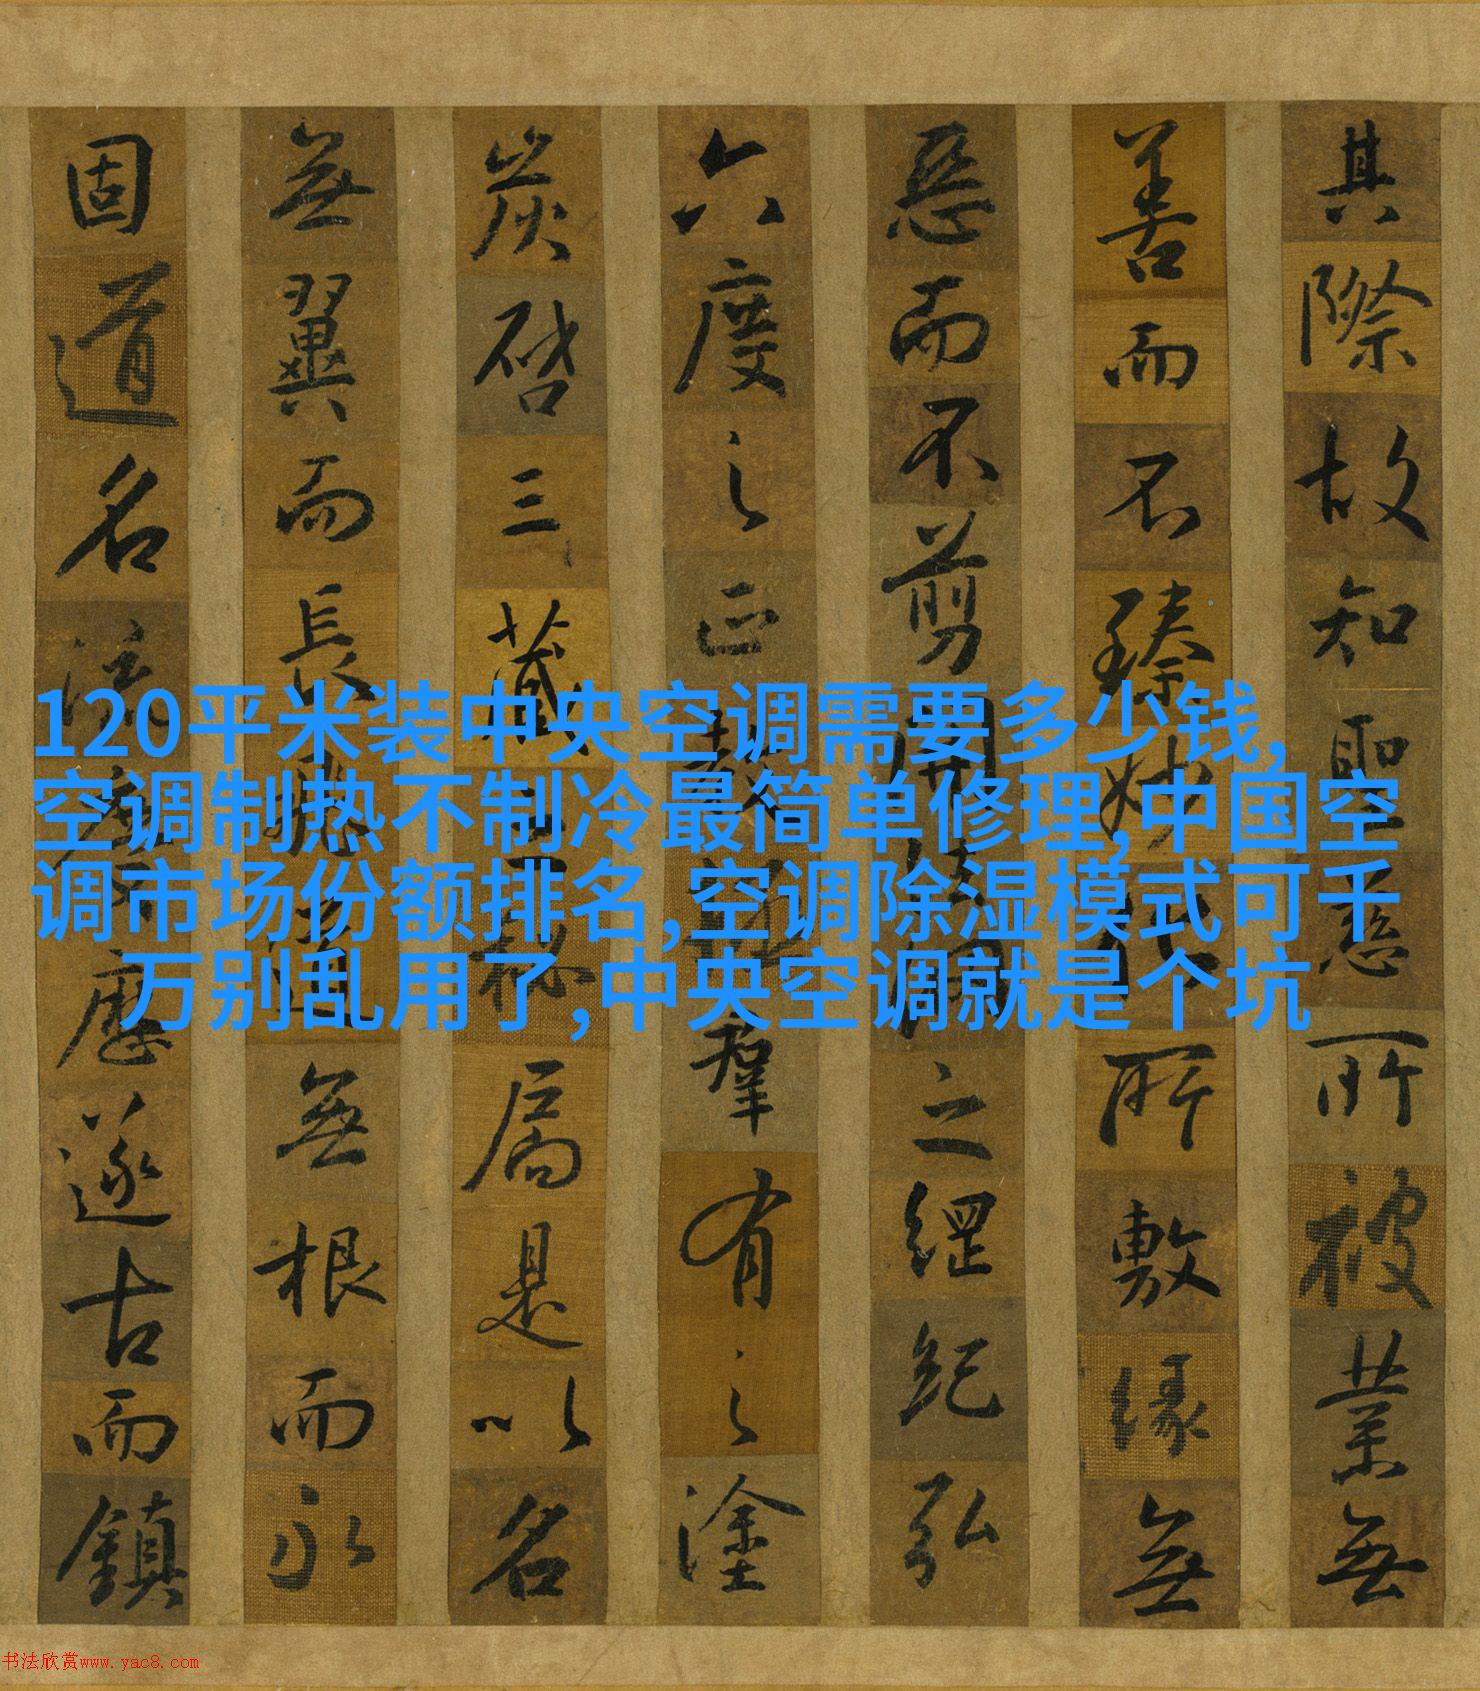 其際故知聖慈所被業無
善而不臻妙化所敷緣無
惡而不剪開法網之綱紀弘
六度之正教拯羣有之塗
炭啓三藏之秘扃是以名
無翼而長飛道無根而永
固道名流慶歷遂古而鎮
120平米装中央空调需要多少钱,
空调制热不制冷最简单修理,中国空
调市场份额排名,空调除湿模式可千
万别乱用了,中央空调就是个坑
书法欣赏www.yac8.com